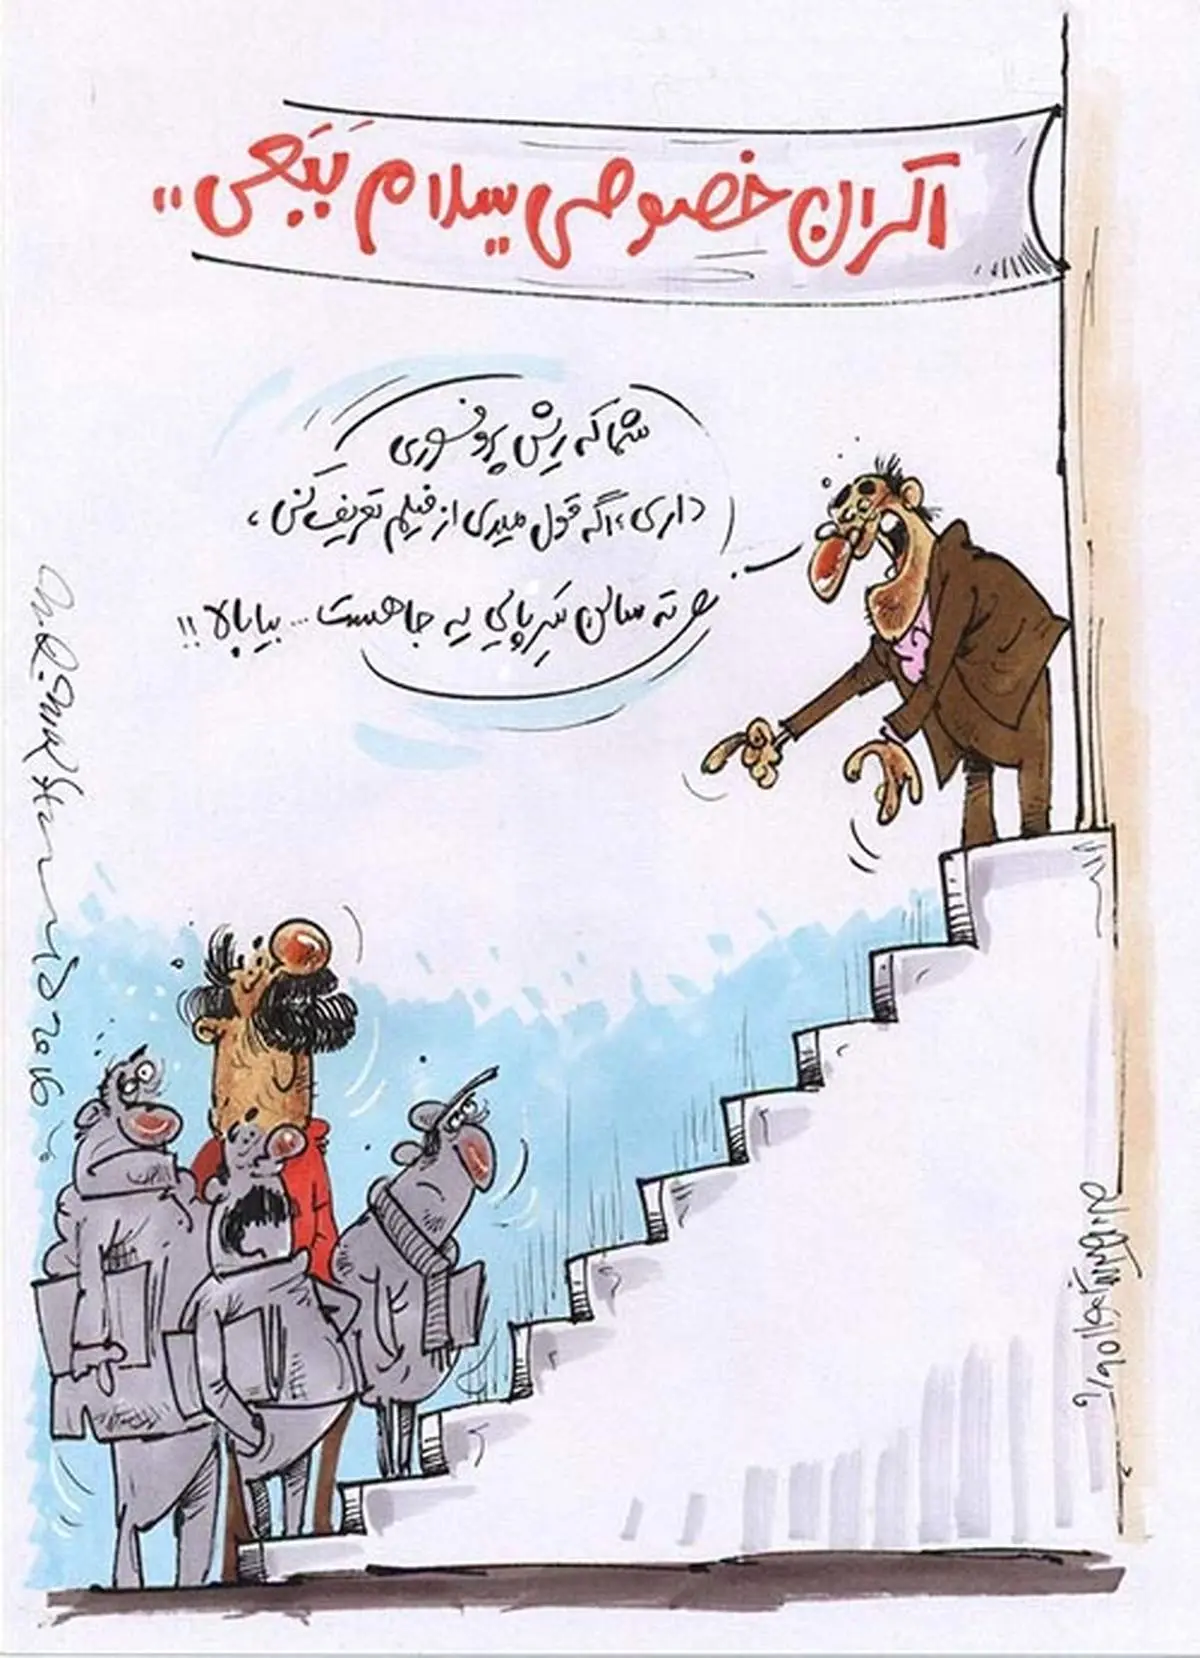 اکران خصوصی سلام بَبَعی..
شما که ریش پروفسوری
داری، اگه قول میدی از فیلم تعریف کنی،
ته سالن سَرِپایی یه جا هست... بیا بالا!!
2016